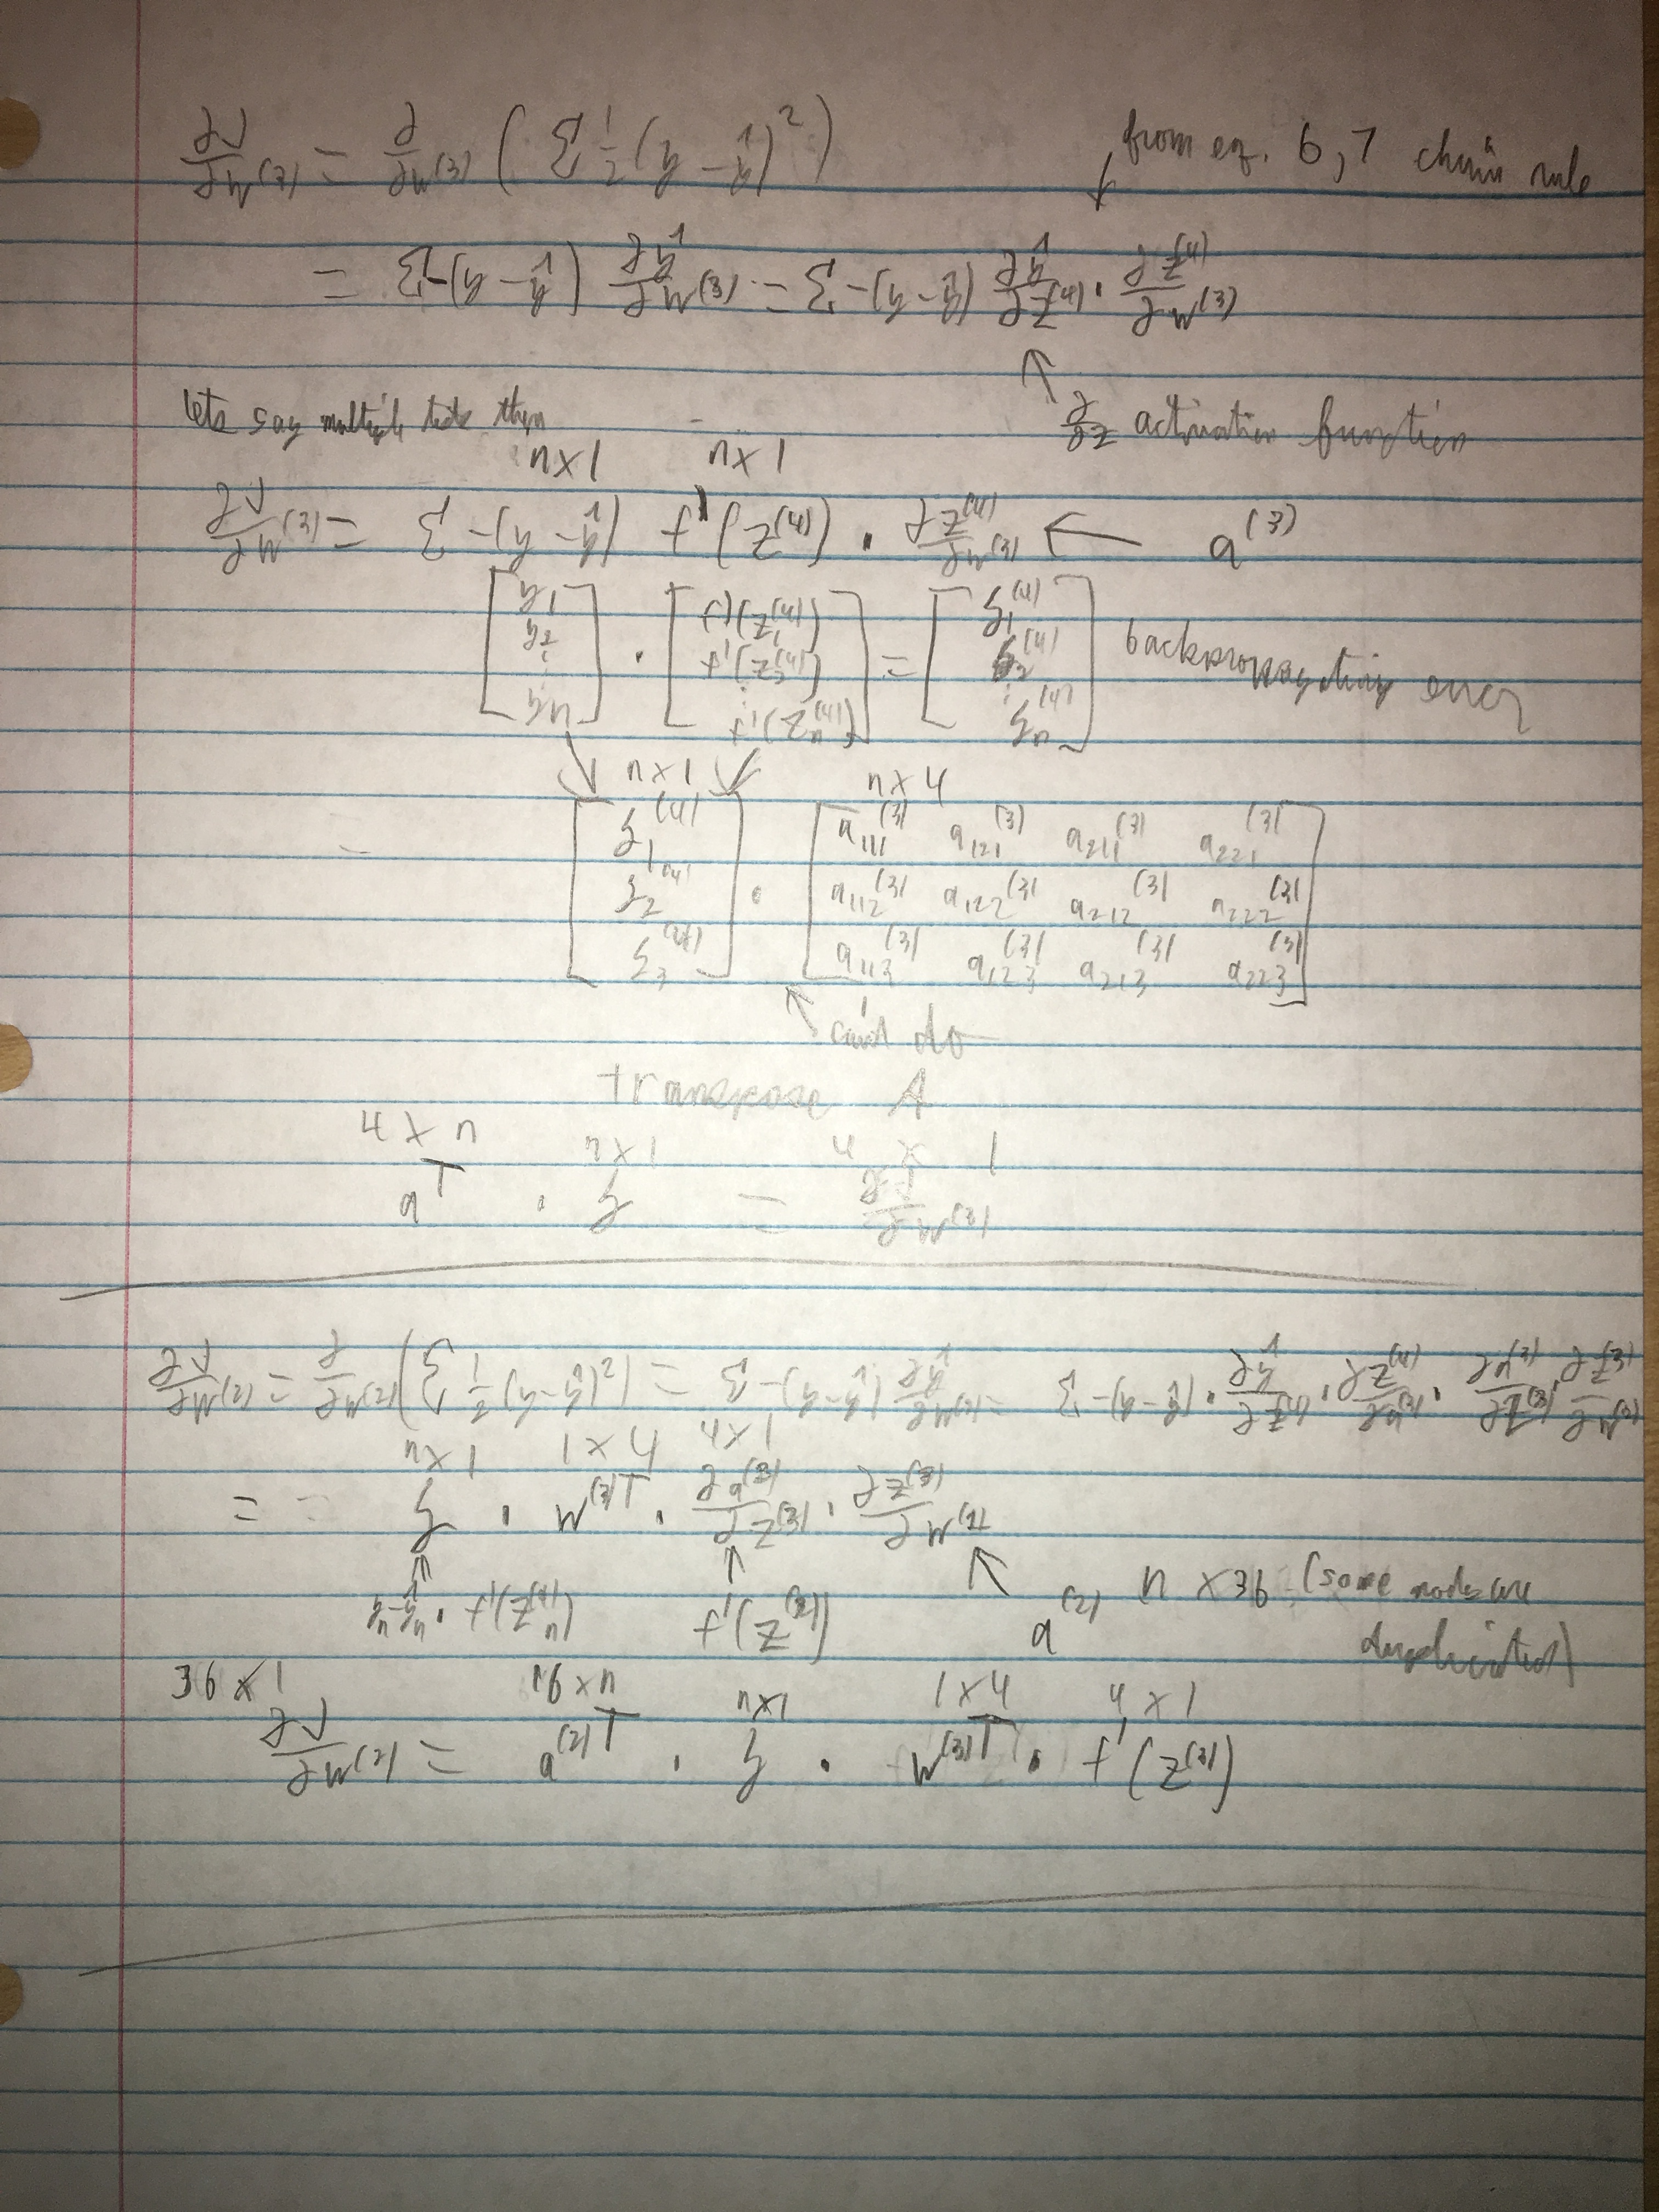 ∂J/∂W^(3) = ∂/∂W^(3) ( Σ ½(y - ŷ)² )
from eq. 6,7 chain rule
= Σ -(y - ŷ) ∂ŷ/∂W^(3) = Σ -(y - ŷ) ∂ŷ/∂Z^(4) · ∂Z^(4)/∂W^(3)
lets say multiple then
∂/∂Z activation function
n×1 n×1
∂J/∂W^(3) = Σ -(y - ŷ) f'(Z^(4)) · ∂Z^(4)/∂W^(3) ← a^(3)
[y1 y2 ⋮ yn] · [f'(Z1^(4)) f'(Z2^(4)) ⋮ f'(Zn^(4))] = [δ1^(4) δ2^(4) ⋮ δn^(4)] backpropagating error
n×1 n×4
= [δ1^(4) δ2^(4) δ3^(4)] · [a111^(3) a121^(3) a211^(3) a221^(3)
a112^(3) a122^(3) a212^(3) a222^(3)
a113^(3) a123^(3) a213^(3) a223^(3)]
can't do
transpose A
4×n n×1 4×1
a^T · δ = ∂J/∂W^(3)
∂J/∂W^(2) = ∂/∂W^(2) (Σ ½(y-ŷ)²) = Σ -(y-ŷ) ∂ŷ/∂W^(2) = Σ -(y-ŷ) · ∂ŷ/∂Z^(4) · ∂Z^(4)/∂a^(3) · ∂a^(3)/∂Z^(3) · ∂Z^(3)/∂W^(2)
n×1 1×4 4×1
= = δ · W^(3)T · ∂a^(3)/∂Z^(3) · ∂Z^(3)/∂W^(2)
yn-ŷn · f'(Zn^(4)) f'(Z^(3)) a^(2) n×36 (some nodes are
duplicated)
36×1 16×n n×1 1×4 4×1
∂J/∂W^(2) = a^(2)T · δ · W^(3)T · f'(Z^(3))